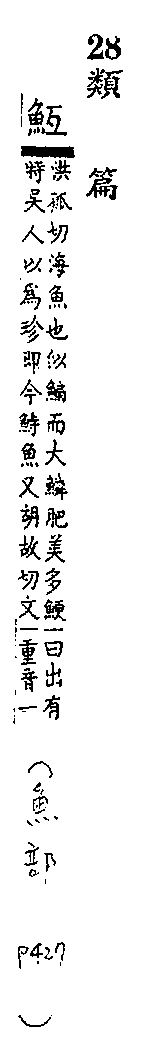 28類篇
䱐
洪孤切海魚也似鯿而大鱗肥美多鯁一曰出有
時吳人以爲珍即今鰣魚又胡故切文一重音一
(魚部 p427)